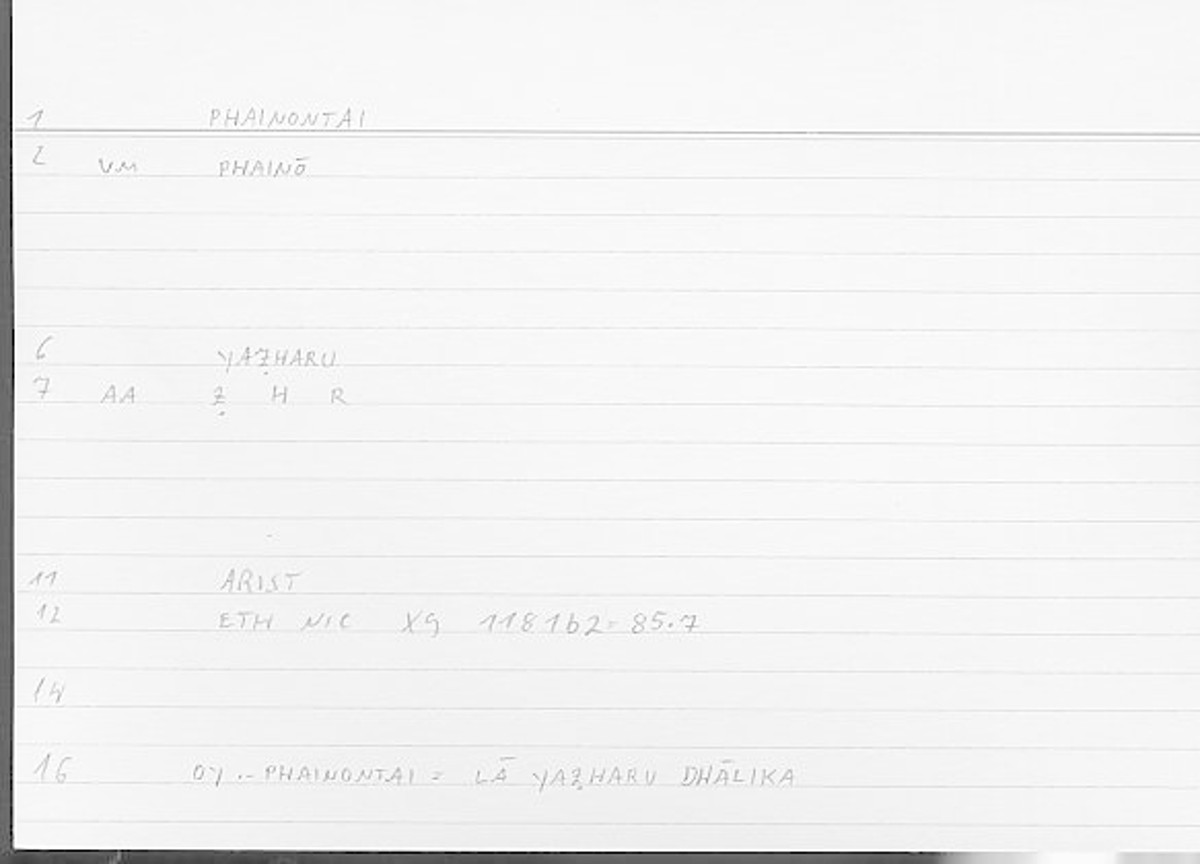 1 PHAINONTAI
2 VM PHAINŌ
6 YAẒHARU
7 AA Ẓ H R
11 ARIST
12 ETH NIC X9 1181b2=85.7
14
16 OY .- PHAINONTAI = LĀ YAẒHARU DHĀLIKA